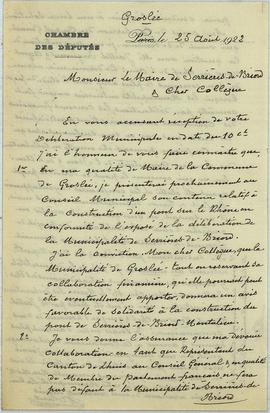 Groslée
CHAMBRE
DES DÉPUTÉS
Paris, le 25 Août 1922
Monsieur Le Maire de Serrières-de-Briord
& Cher Collègue
En vous accusant réception de votre
Délibération Municipale en date du 10 ct
j'ai l'honneur de vous faire connaître que
1° En ma qualité de Maire de la Commune
de Groslée, je présenterai prochainement au
Conseil Municipal son contenu relatif à
la Construction d'un pont sur le Rhône en
conformité de l'exposé de la délibération de
la Municipalité de Serrières-de-Briord
J'ai la Conviction Mon cher Collègue, que la
Municipalité de Groslée tout en réservant sa
collaboration financière, qu'elle pourrait peut
être éventuellement apporter, donnera un avis
favorable de Solidarité à la construction du
pont de Serrières-de-Briord-Montalieu.
2° Je vous donne l'assurance que ma dévouée
Collaboration en tant que Représentant du
Canton de Lhuis au Conseil Général & en qualité
de Membre du Parlement français ne fera
pas défaut à la Municipalité de Serrières-de-
Briord